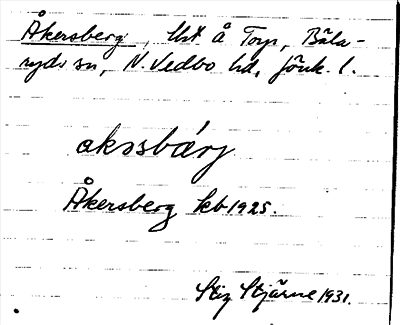 Åkersberg, lht å Torp, Bäla-
ryds sn, N. Vedbo hd, Jönk. l.
akssbärj
Åkersberg kb 1925.
Stig Stjärne 1931.